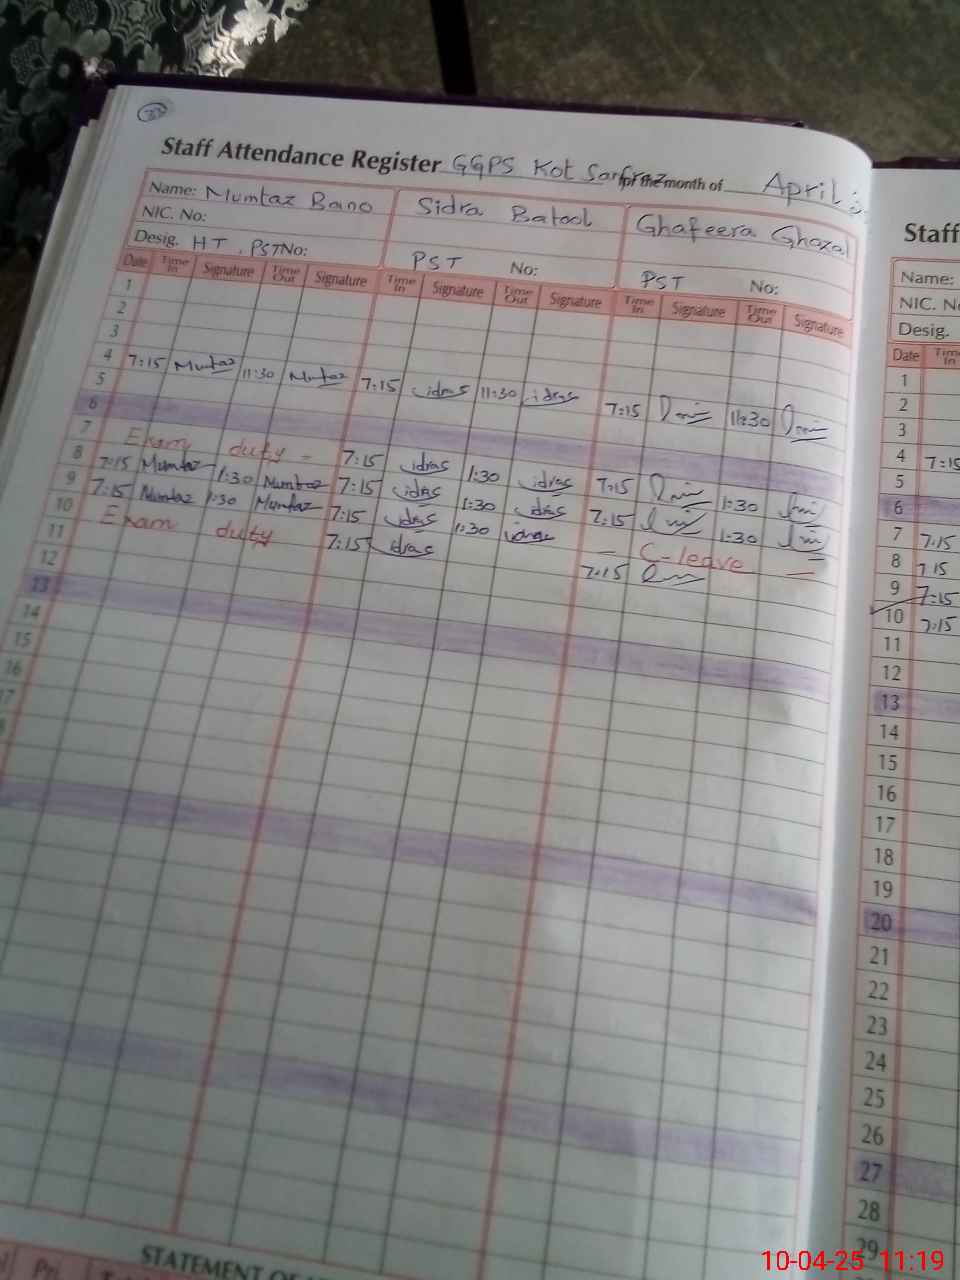 Staff Attendance Register GGPS Kot Sarfraz for the month of April
Name: Mumtaz Bano Sidra Batool Ghafeera Ghazal
NIC. No:
Desig. HT, PST No: PST No: PST No:
Date Time In Signature Time Out Signature Time In Signature Time Out Signature Time In Signature Time Out Signature
1
2
3
4 7:15 Mumtaz 11:30 Mumtaz 7:15 idras 11:30 idras 7:15 11:30
5
6
7 Exam duty 7:15 idras 1:30 idras 7:15 1:30
8 7:15 Mumtaz 1:30 Mumtaz 7:15 idras 1:30 idras 7:15 1:30
9 7:15 Mumtaz 1:30 Mumtaz 7:15 idras 1:30 idras C-leave
10 Exam duty 7:15 idras 7:15
11
12
13
14
15
16
17
STATEMENT OF
Staff
Name:
NIC. N
Desig.
Date Time In
1
2
3
4 7:15
5
6
7 7:15
8 7:15
9 7:15
10 7:15
11
12
13
14
15
16
17
18
19
20
21
22
23
24
25
26
27
28
29
10-04-25 11:19